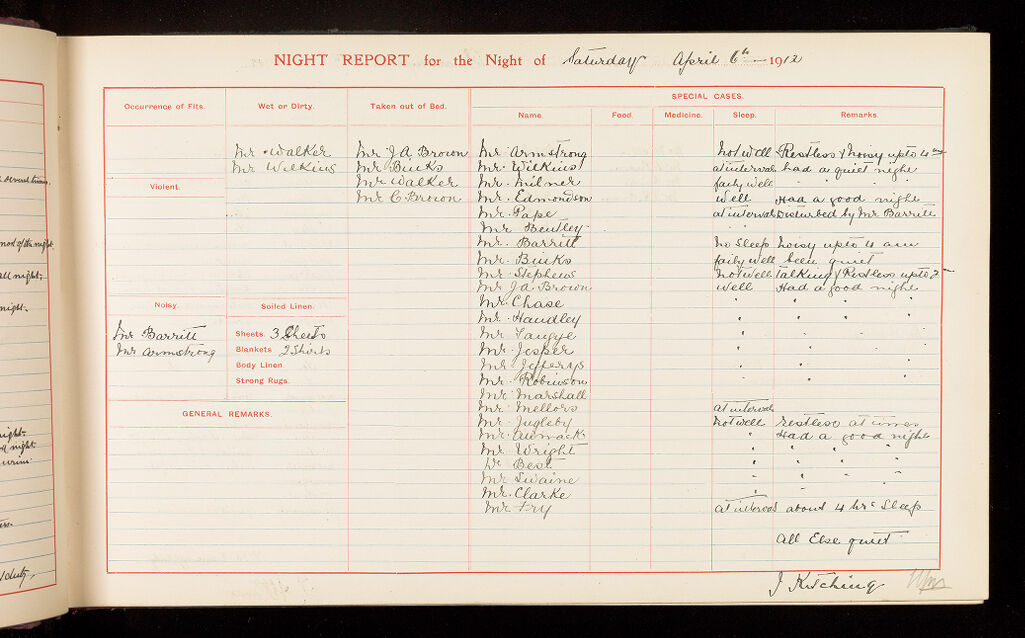 NIGHT REPORT for the Night of Saturday April 6th 1912
Occurrence of Fits.
Wet or Dirty.
Taken out of Bed.
SPECIAL CASES.
Name.
Food.
Medicine.
Sleep.
Remarks.
Mr Walker
Mr Wilkins
Mr J A Brown
Mr Binks
Mr Walker
Mr C. Brown
Violent.
Noisy.
Mr Barritt
Mr Armstrong
Soiled Linen.
Sheets. 3 Sheets
Blankets 2 Shirts
Body Linen.
Strong Rugs.
GENERAL REMARKS.
Mr Armstrong not well Restless & Noisy upto 4 am
Mr. Wilkins at intervals had a quiet night
Mr. Milner faily well " "
Mr. Edmondson well Had a good night
Mr. Pape at intervals Disturbed by Mr Barritt
Mr Bentley " "
Mr. Barritt no Sleep noisy upto 4 am
Mr. Binks faily well been quiet
Mr Stephens not well Talking & Restless upto 2
Mr J A Brown well Had a good night
Mr. Chase " " " "
Mr. Handley " " " "
Mr Tangye " " "
Mr. Jesper " " "
Mr Jefferys " "
Mr. Robinson " " "
Mr Marshall
Mr Mellors at intervals
Mr. Jugleby not well restless at times
Mr. " Had a good night
Mr. Wright " " " " "
Dr Best " " " "
Mr Swaine " " "
Mr. Clarke " "
Mr Fry at intervals about 4 hrs Sleep
All Else quiet
J Kitching
several times.
most of the night.
all night.
night.
night.
night.
duty.